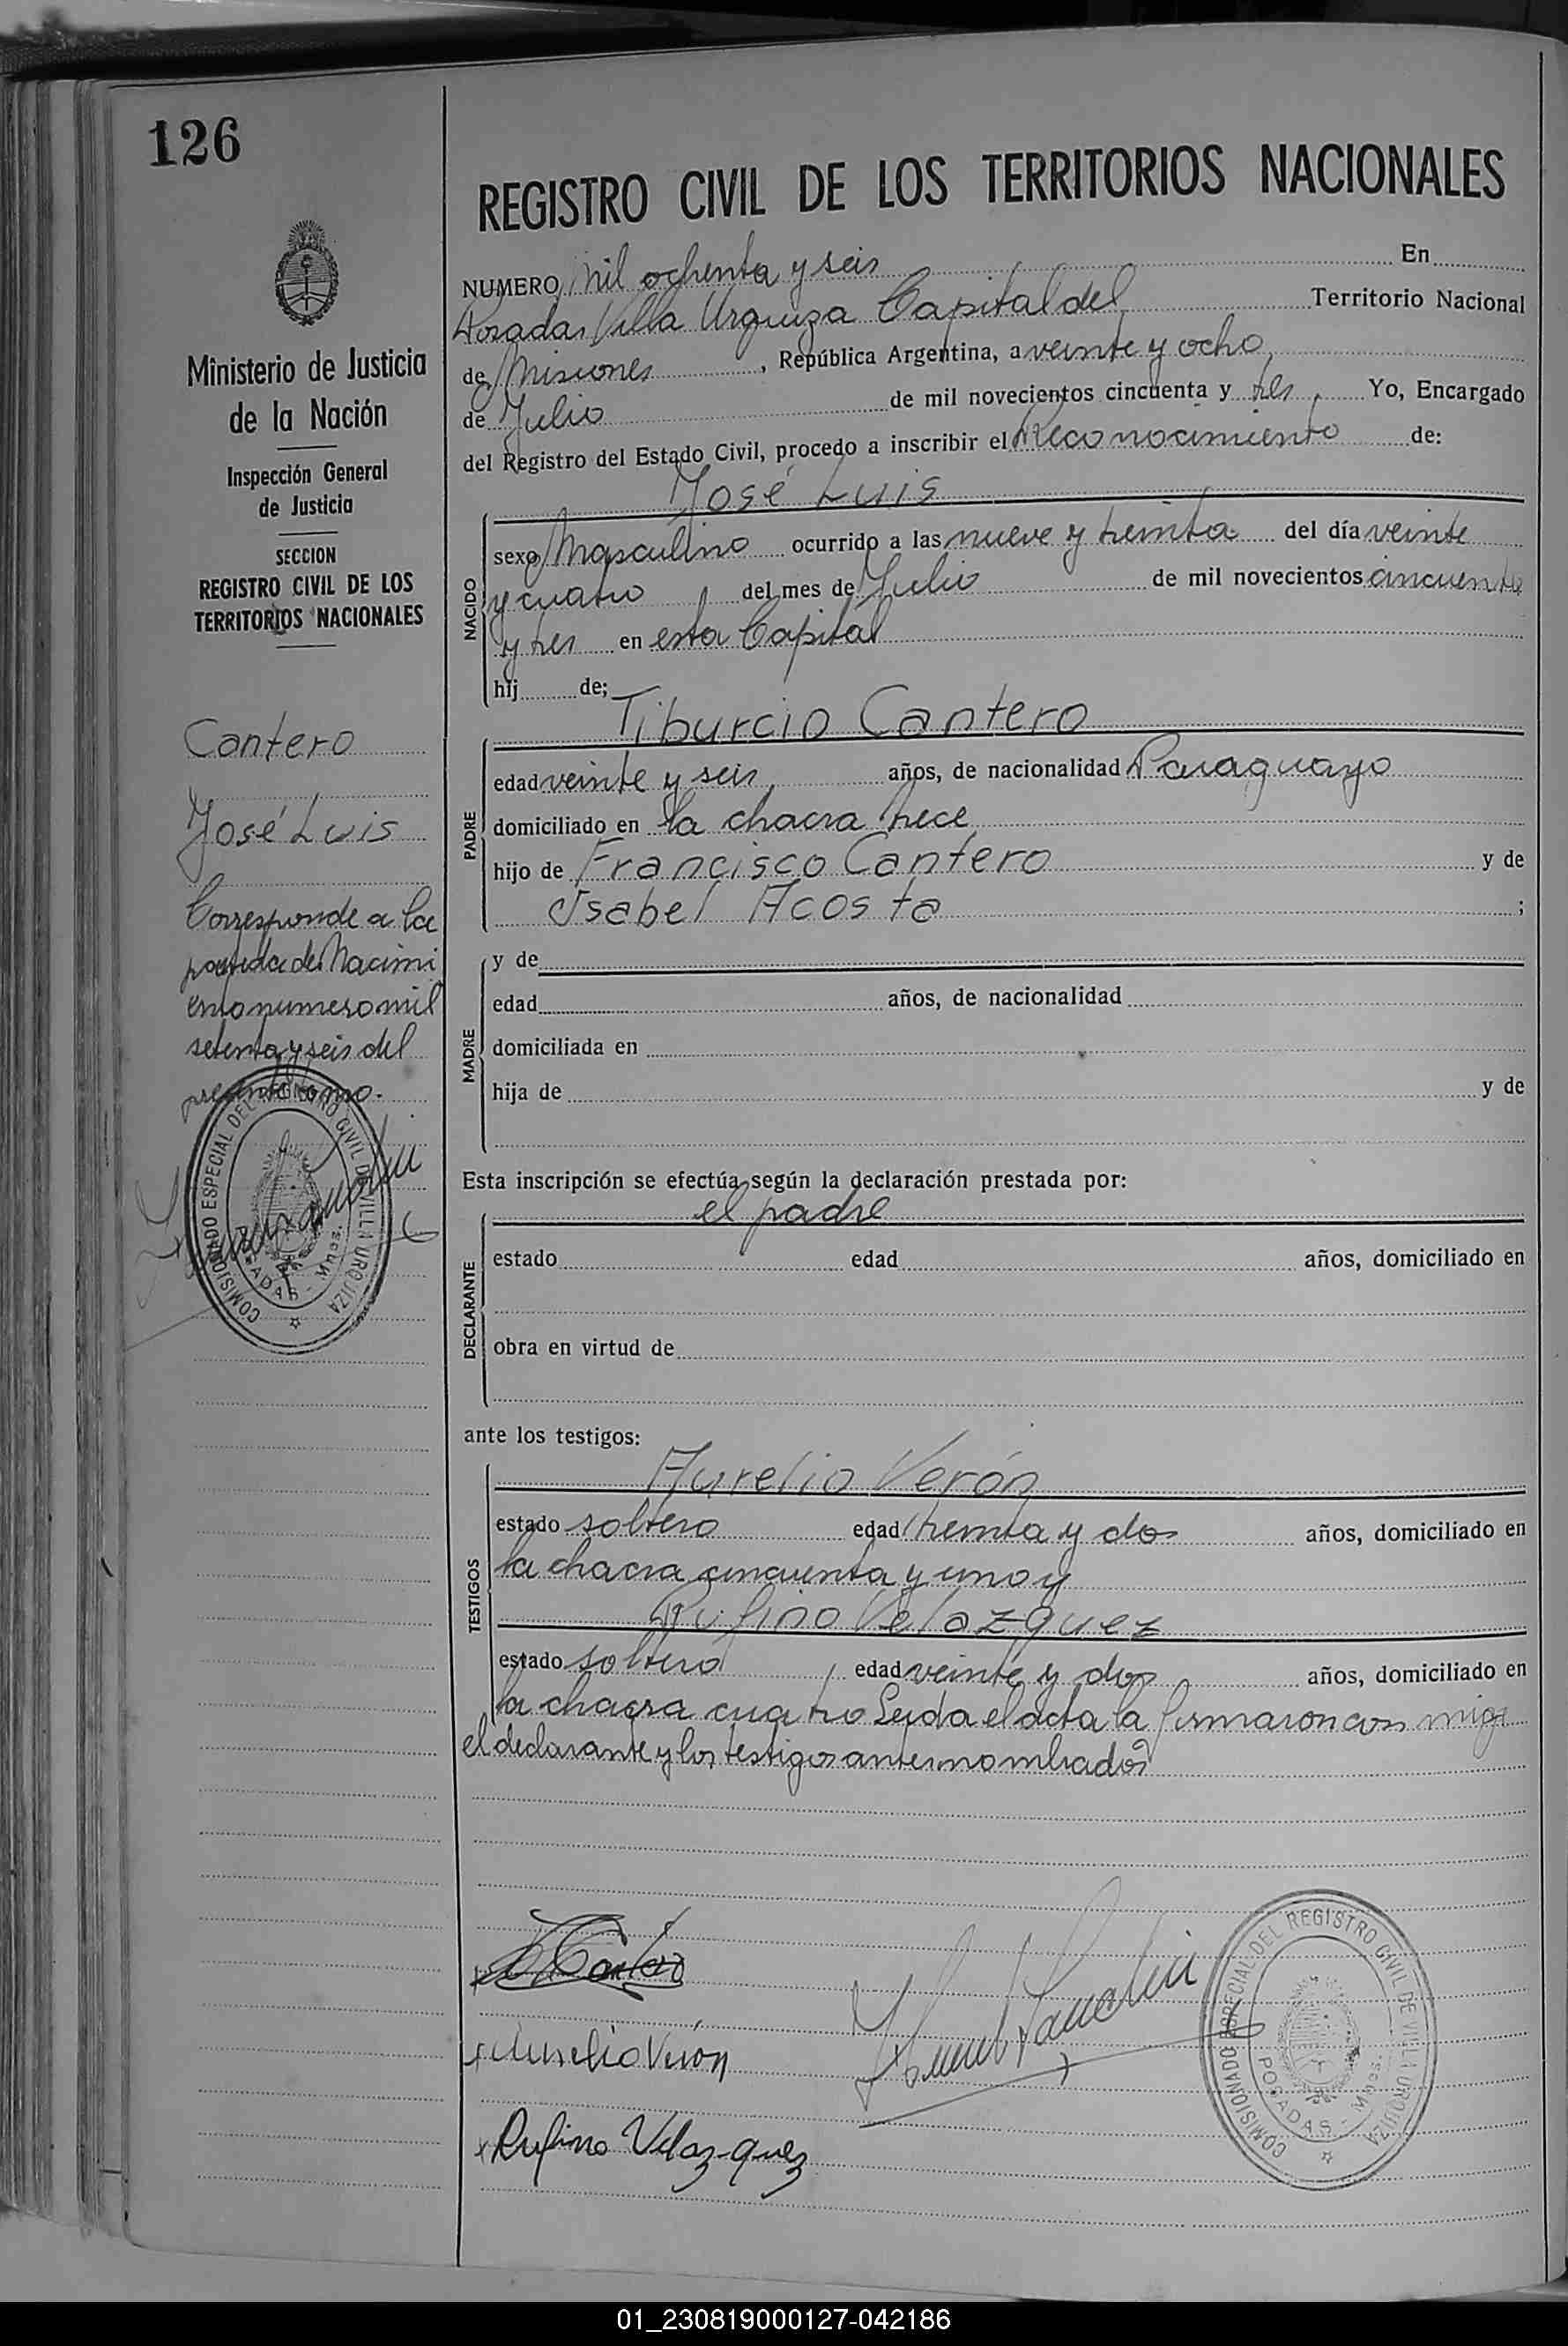 126
Ministerio de Justicia
de la Nación
Inspección General
de Justicia
SECCION
REGISTRO CIVIL DE LOS
TERRITORIOS NACIONALES
Cantero
José Luis
Corresponde a la
partida de Nacimi
ento numero mil
setenta y seis del
presente tomo.
COMISIONADO ESPECIAL DEL REGISTRO CIVIL DE VILLA URQUIZA
POSADAS - Mnes.
REGISTRO CIVIL DE LOS TERRITORIOS NACIONALES
NUMERO Mil ochenta y seis En
Posadas Villa Urquiza Capital del Territorio Nacional
de Misiones, República Argentina, a veinte y ocho
de Julio de mil novecientos cincuenta y tres, Yo, Encargado
del Registro del Estado Civil, procedo a inscribir el Reconocimiento de:
José Luis
NACIDO
sexo Masculino ocurrido a las nueve y treinta del día veinte
y cuatro del mes de Julio de mil novecientos cincuenta
y tres en esta Capital
hij de;
Tiburcio Cantero
PADRE
edad veinte y seis años, de nacionalidad Paraguayo
domiciliado en la chacra trece
hijo de Francisco Cantero y de
Isabel Acosta ;
MADRE
y de
edad años, de nacionalidad
domiciliada en
hija de y de
Esta inscripción se efectúa según la declaración prestada por:
el padre
DECLARANTE
estado edad años, domiciliado en
obra en virtud de
ante los testigos:
Aurelio Verón
TESTIGOS
estado soltero edad treinta y dos años, domiciliado en
la chacra cincuenta y uno y
Rufino Velazquez
estado soltero, edad veinte y dos años, domiciliado en
la chacra cuatro Leida el acta la firmaron con migo
el declarante y los testigos antes nombrados
Cantero
Aurelio Verón
Rufino Velazquez
COMISIONADO ESPECIAL DEL REGISTRO CIVIL DE VILLA URQUIZA
POSADAS - Mnes.
01_230819000127-042186